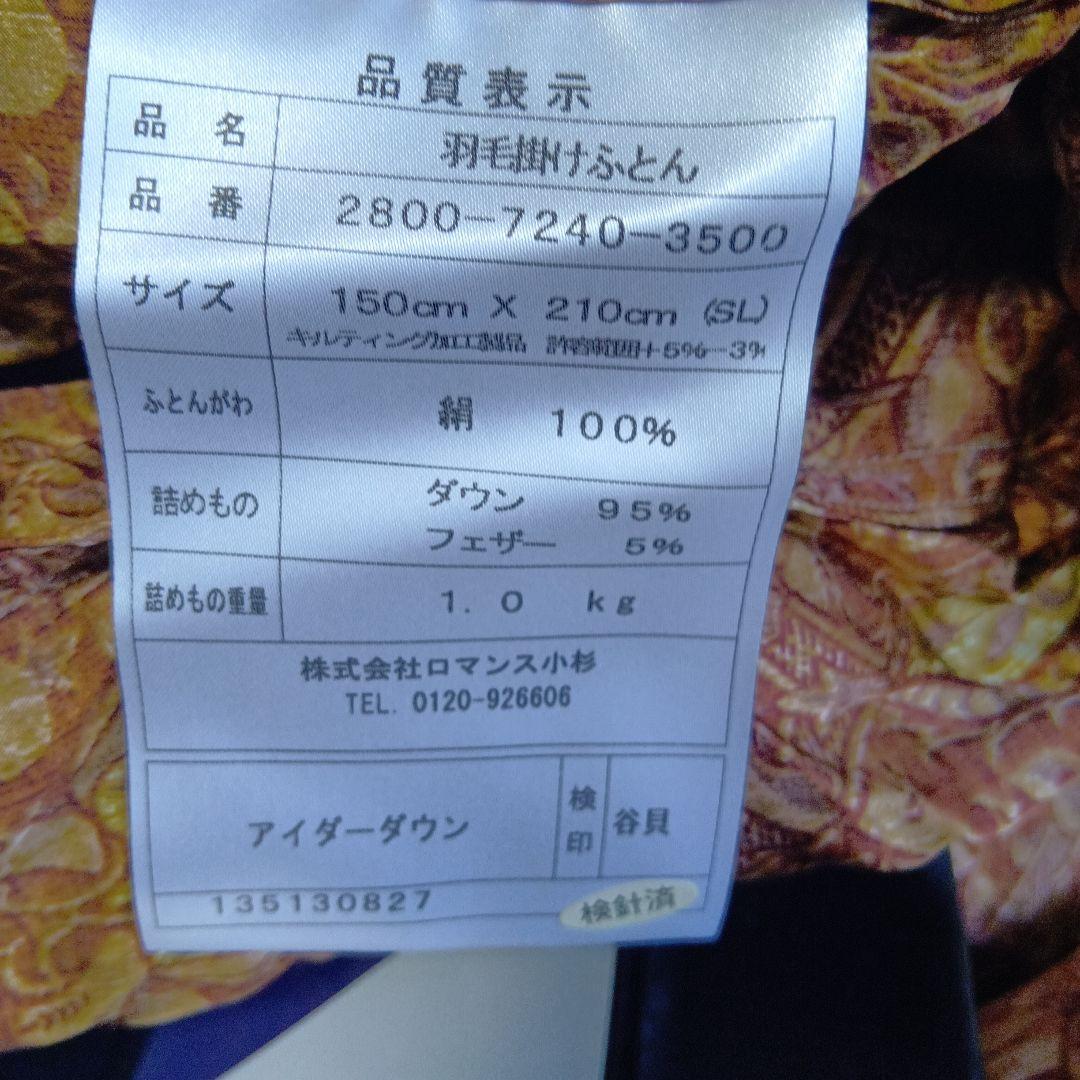 品質表示
品名 羽毛掛けふとん
品番 2800-7240-3500
サイズ 150cm X 210cm (SL)
キルティング加工製品 許容範囲+5%-3%
ふとんがわ 絹 100%
詰めもの ダウン 95%
フェザー 5%
詰めもの重量 1.0 kg
株式会社ロマンス小杉
TEL. 0120-926606
アイダーダウン 検印 谷貝
135130827 検針済